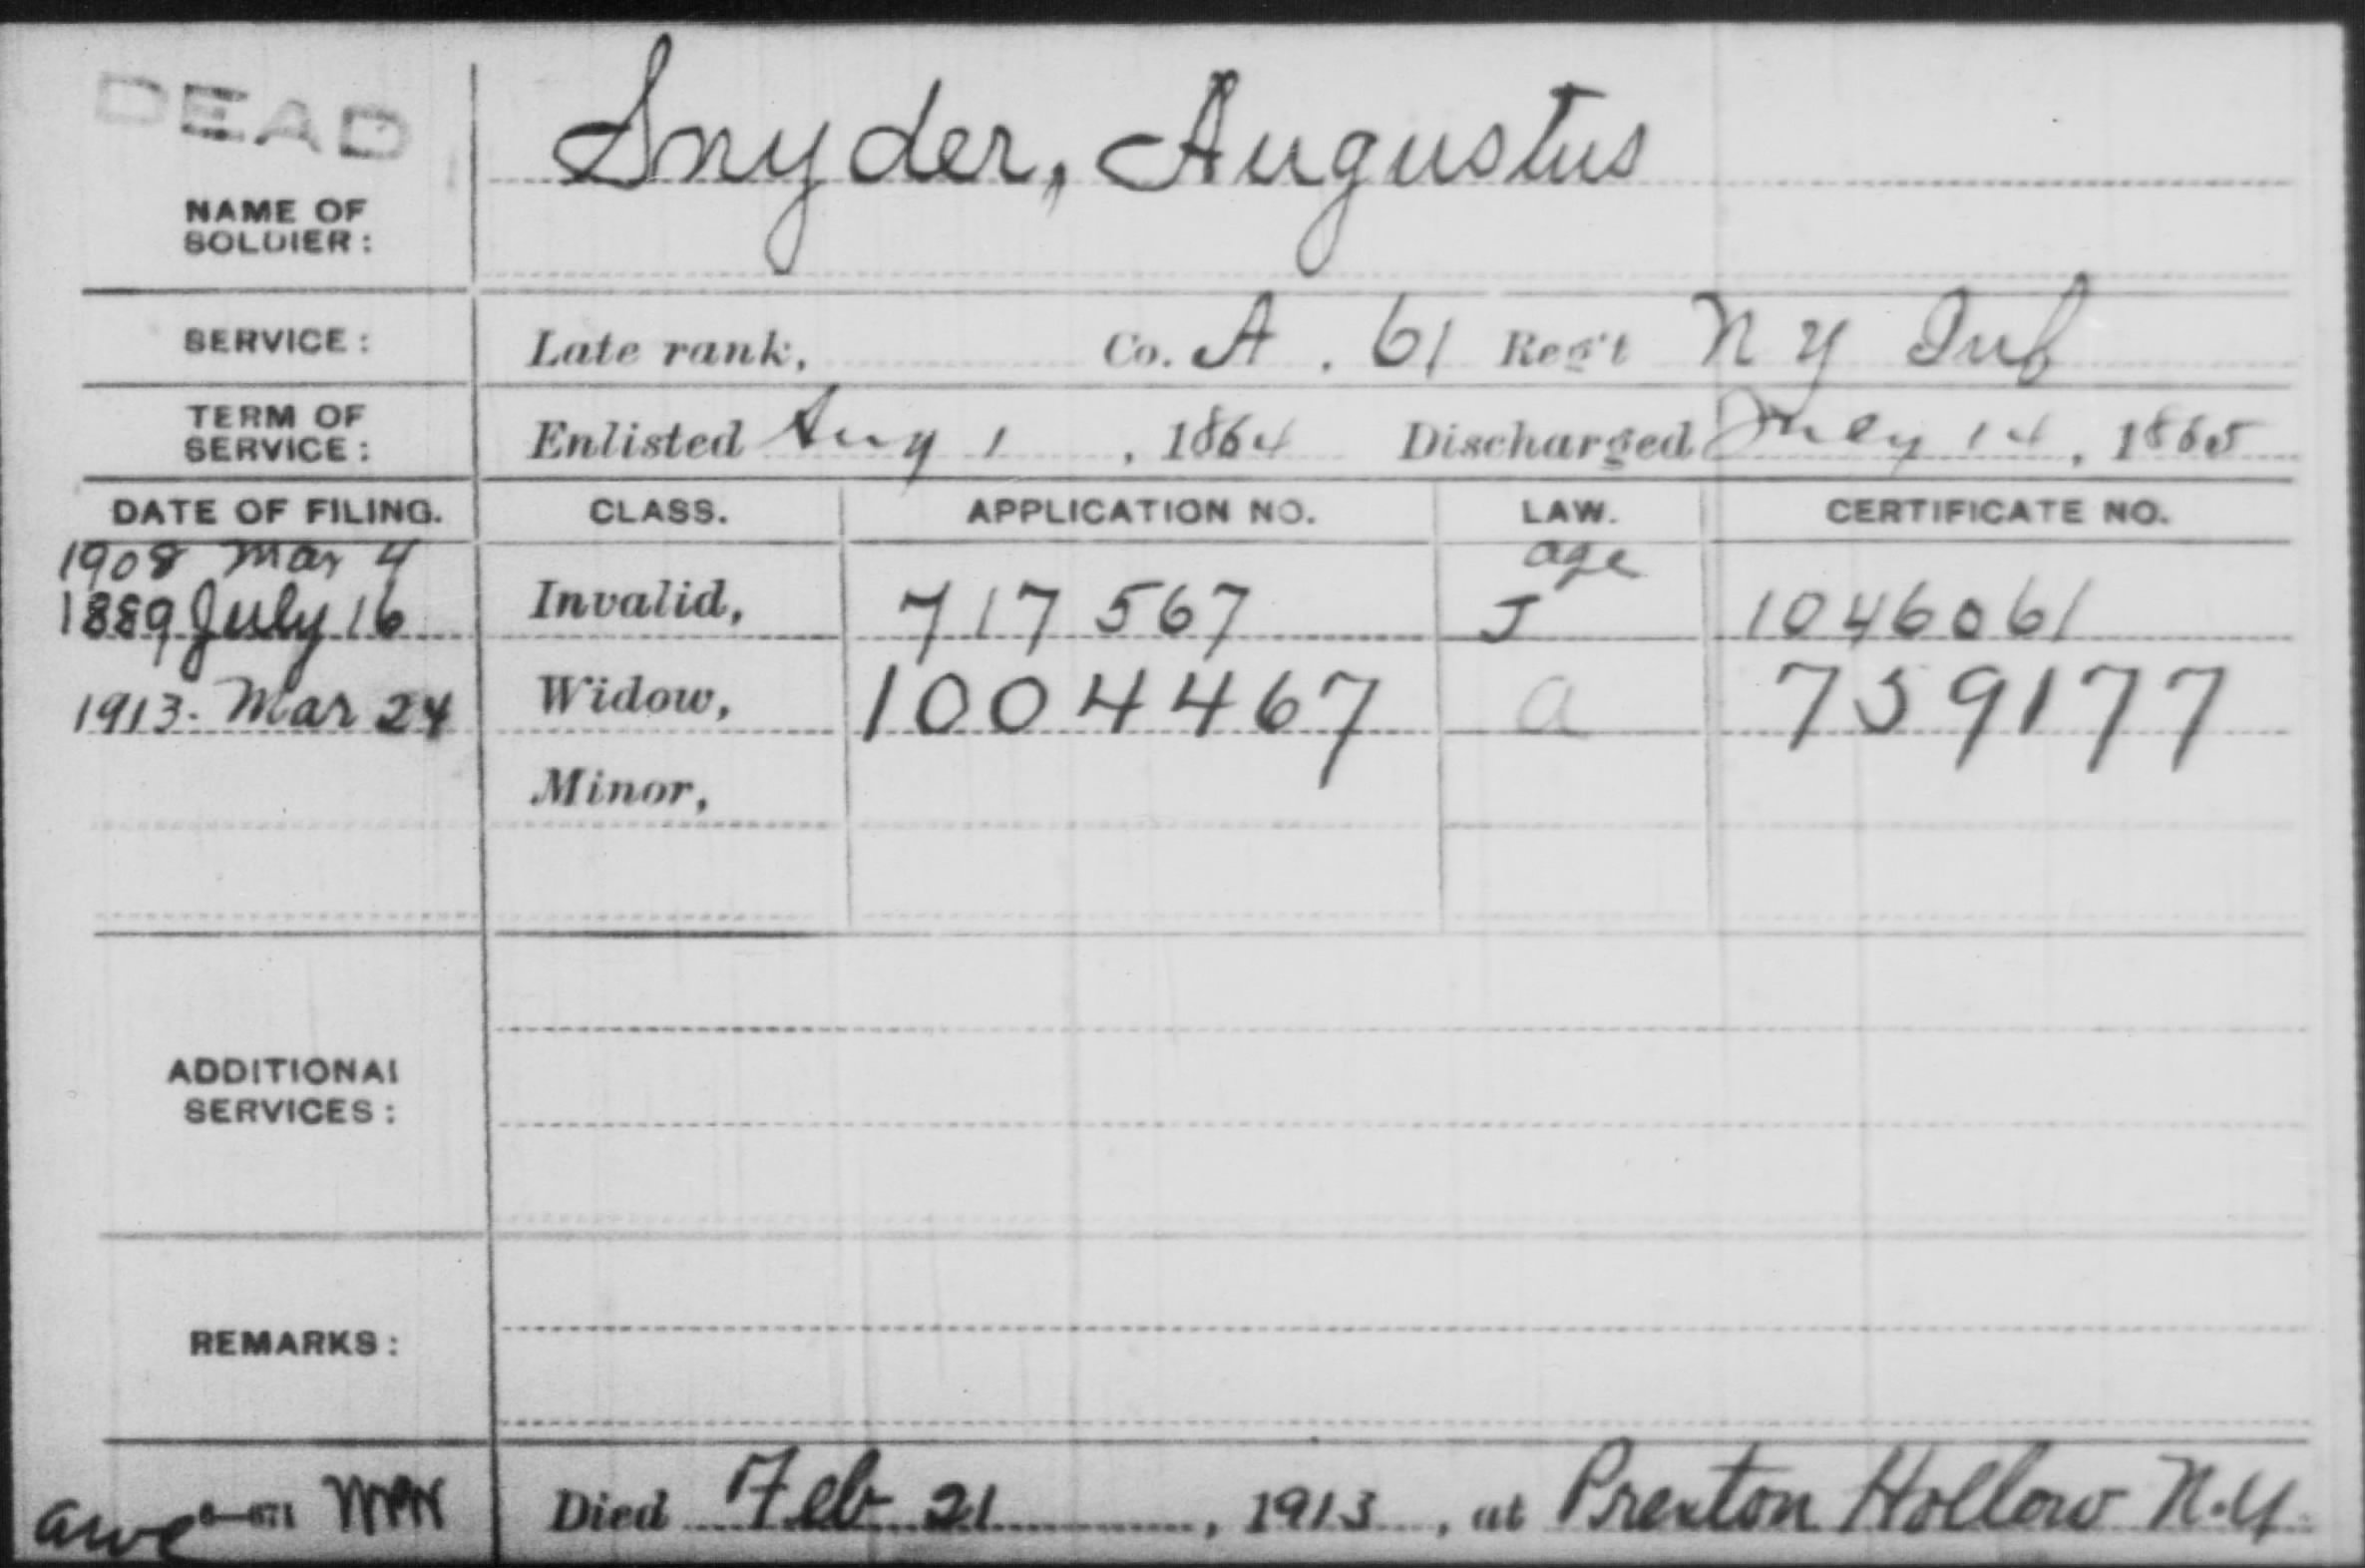 DEAD
Snyder, Augustus
NAME OF
SOLDIER:
SERVICE: Late rank, Co. A. 61 Reg't N Y Inf
TERM OF
SERVICE: Enlisted Aug 1, 1864 Discharged July 14, 1865
DATE OF FILING. CLASS. APPLICATION NO. LAW. CERTIFICATE NO.
1908 Mar 4 age
1889 July 16 Invalid, 717 567 J 1046061
1913. Mar 24 Widow, 1004467 a 759177
Minor,
ADDITIONAL
SERVICES:
REMARKS:
Died Feb 21, 1913, at Preston Hollow N.Y.